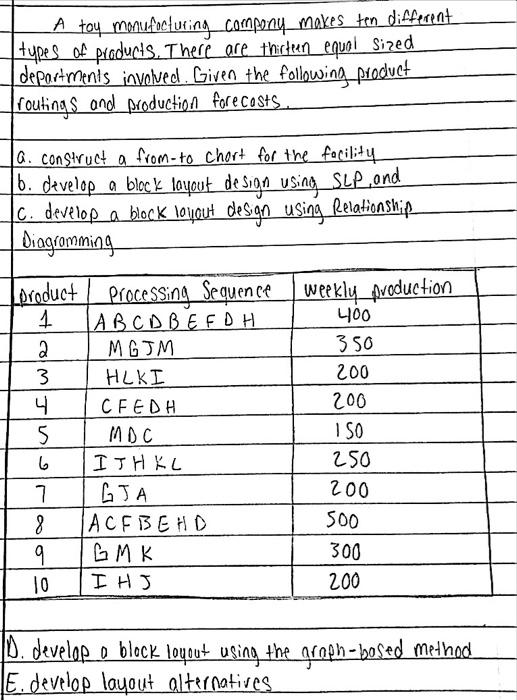 A toy manufacturing company makes ten different
types of products. There are thirteen equal sized
departments involved. Given the following product
routings and production forecasts.
a. construct a from-to chart for the facility
b. develop a block layout design using SLP, and
c. develop a block layout design using Relationship
Diagramming
product | Processing Sequence | Weekly production
1 | A B C D B E F D H | 400
2 | M G J M | 350
3 | H L K I | 200
4 | C F E D H | 200
5 | M D C | 150
6 | I J H K L | 250
7 | G J A | 200
8 | A C F B E H D | 500
9 | G M K | 300
10 | I H J | 200
D. develop a block layout using the graph-based method
E. develop layout alternatives